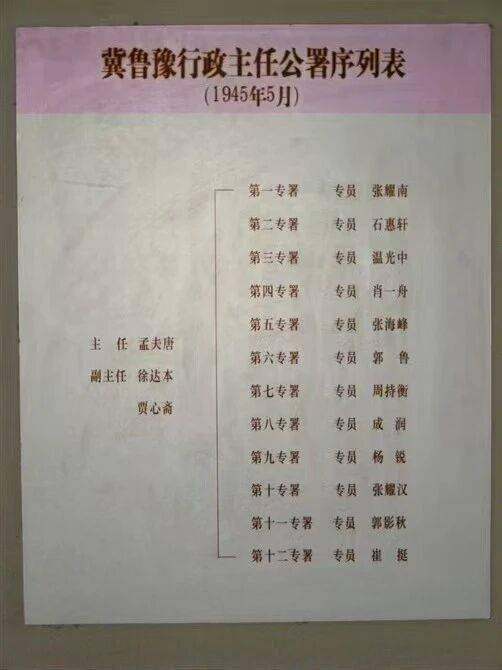 冀鲁豫行政主任公署序列表
(1945年5月)
主 任 孟夫唐
副主任 徐达本
贾心斋
第一专署 专员 张耀南
第二专署 专员 石惠轩
第三专署 专员 温光中
第四专署 专员 肖一舟
第五专署 专员 张海峰
第六专署 专员 郭 鲁
第七专署 专员 周持衡
第八专署 专员 成 润
第九专署 专员 杨 锐
第十专署 专员 张耀汉
第十一专署 专员 郭影秋
第十二专署 专员 崔 挺